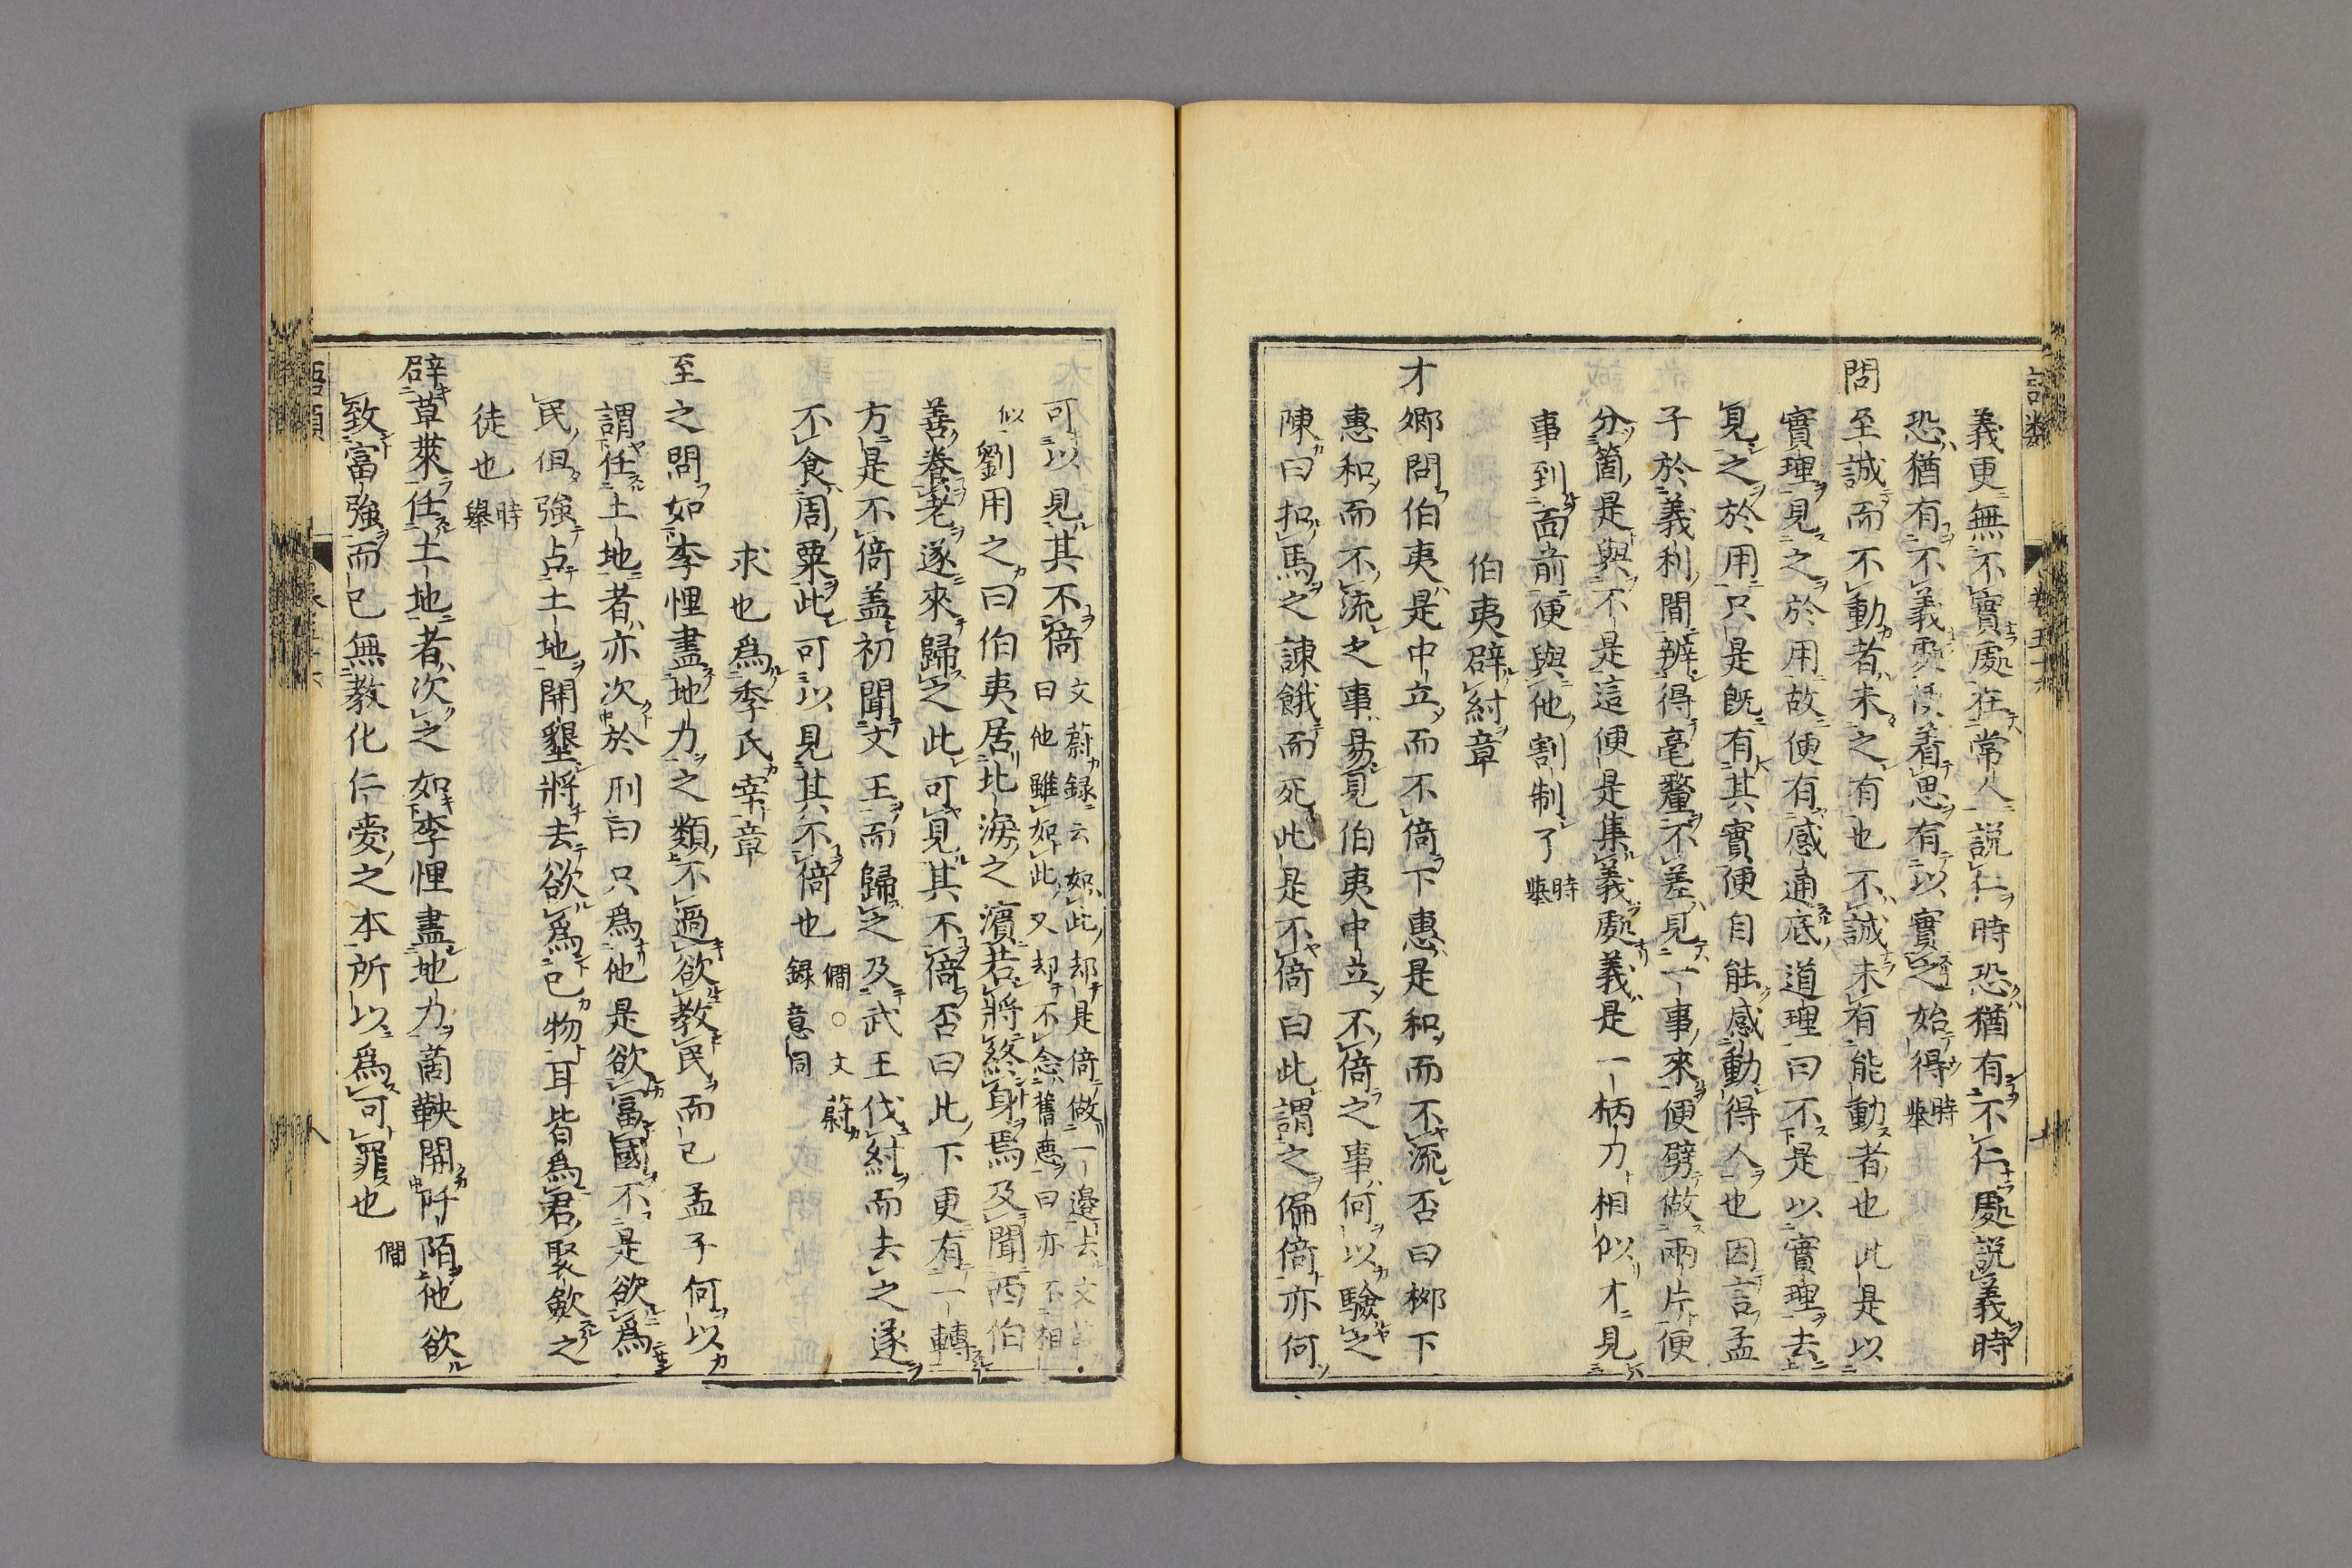 義更無不實處在常人説仁時恐猶有不仁處説義時
恐猶有不義處須着思有以實之始得時舉
問至誠而不動者未之有也不誠未有能動者也此是以
實理見之於用故便有感通底道理曰不是以實理去
見之於用只是既有其實便自能感動得人也因言孟
子於義利間辨得毫釐不差見一事來便劈做兩片便
分箇是與不是這便是集義處義是一柄刀相似才見
事到面前便與他割制了時舉
伯夷辟紂章
才卿問伯夷是中立而不倚下惠是和而不流否曰柳下
惠和而不流之事易見伯夷中立不倚之事何以驗之
陳曰扣馬之諫餓而死此是不倚曰此謂之偏倚亦何
可以見其不倚文蔚録云如此却是倚做一邊去文蔚
曰他雖如此又却不念舊惡曰亦不相
似劉用之曰伯夷居北海之濱若將終身焉及聞西伯
善養老遂來歸之此可見其不倚否曰此下更有一轉
方是不倚盖初聞文王而歸之及武王伐紂而去之遂
不食周粟此可以見其不倚也僩○文蔚
録意同
求也爲季氏宰章
至之問如李悝盡地力之類不過欲教民而已孟子何以
謂任土地者亦次於刑曰只爲他是欲富國不是欲爲
民但強占土地開墾將去欲爲己物耳皆爲君聚斂之
徒也時舉
辟草萊任土地者次之如李悝盡地力啇鞅開阡陌他欲
致富強而已無教化仁愛之本所以爲可罪也僩